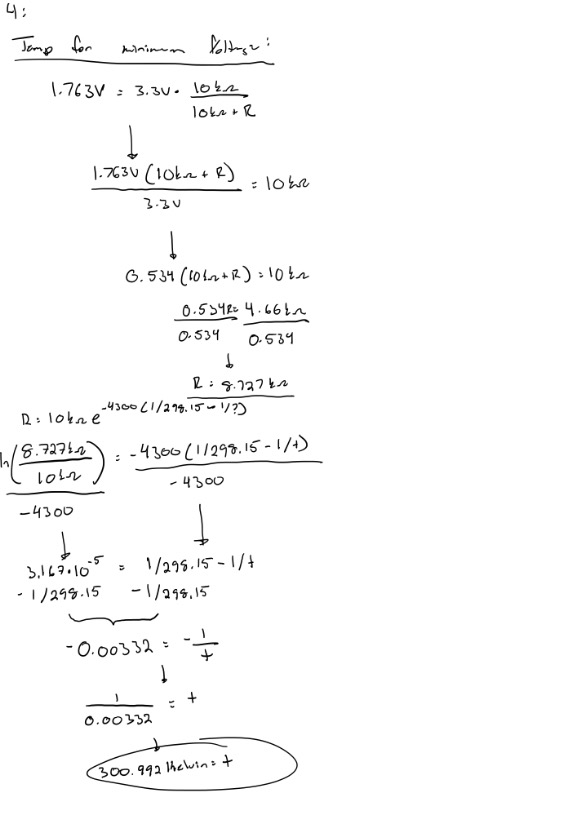 4:
Temp for minimum Voltage:
1.763V = 3.3V · 10kΩ / 10kΩ + R
1.763V (10kΩ + R) / 3.3V = 10kΩ
0.534 (10kΩ + R) = 10kΩ
0.534R = 4.66kΩ
0.534 0.534
R = 8.727kΩ
R = 10kΩ e^-4300(1/298.15 - 1/?)
ln(8.727kΩ / 10kΩ) / -4300 = -4300(1/298.15 - 1/t) / -4300
3.167·10^-5 = 1/298.15 - 1/t
- 1/298.15 - 1/298.15
-0.00332 = - 1/t
1 / 0.00332 = t
300.992 Kelvin = t